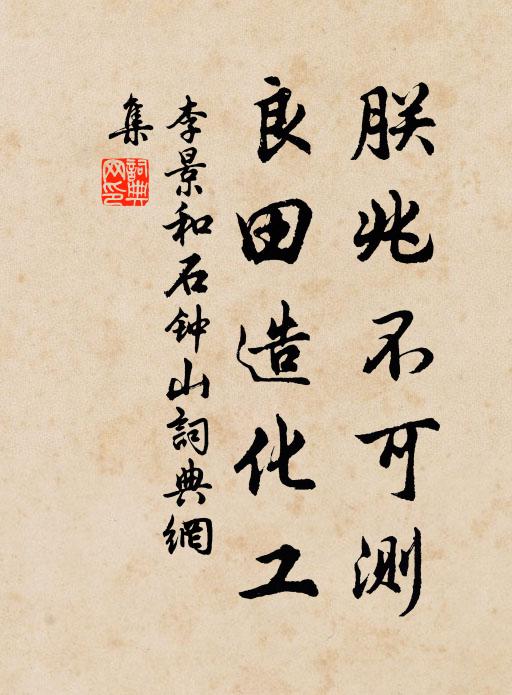 朕兆不可测
良田造化工
李景和石钟山詞典網
集
詞典網印